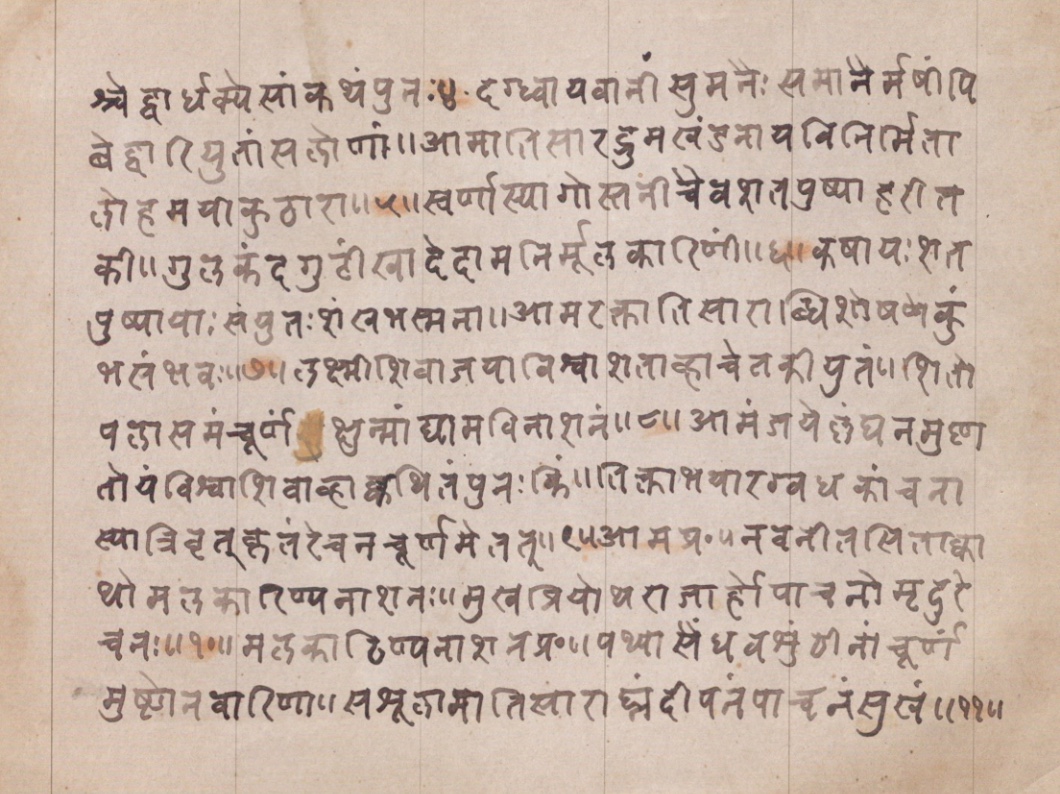 श्चेद्वार्धक्येसांकथंपुनः॥४॥दग्ध्वायवानींसुमनैःसमानैर्मषींपि
बेद्वारियुतांसलोणां॥आमातिसारद्रुमखंडनायविनिर्मिता
लोहमयाकुठारा॥५॥स्वर्णास्यागोस्तनीचैवशतपुष्पाहरीत
की॥गुलकंदगुटीखादेदामनिर्मूलकारिणीं॥६॥कषायःशत
पुष्पायाःसंपुतःशंखभस्मना॥आमरक्तातिसाराब्धिशोषणेकुं
भसंभवः॥७॥लक्ष्मीशिवाजयाविश्वाशताव्हाचेतकीयुतं॥शितो
पलासमंचूर्णं क्षुन्मांद्यामविनाशनं॥८॥आमंजयेलंघनमुष्ण
तोयंविश्वाशिवाव्हाक्वथितंपुनःकिं॥तिक्ताभयारग्वधकांचना
स्यात्रिवृत्कृतंरेचनचूर्णमेतत्॥९॥आमप्र०॥नवनीतसिताक्वा
थोमलकाठिण्यनाशनः॥मुखप्रियोथराजार्होपाचनोमृदुरे
चनः॥१०॥मलकाठिण्यनाशनप्र०॥पथ्यासैंधवशुंठीनांचूर्ण
मुष्णेनवारिणा॥सशूलामातिसाराघ्नंदीपनंपाचनंसुखं॥११॥